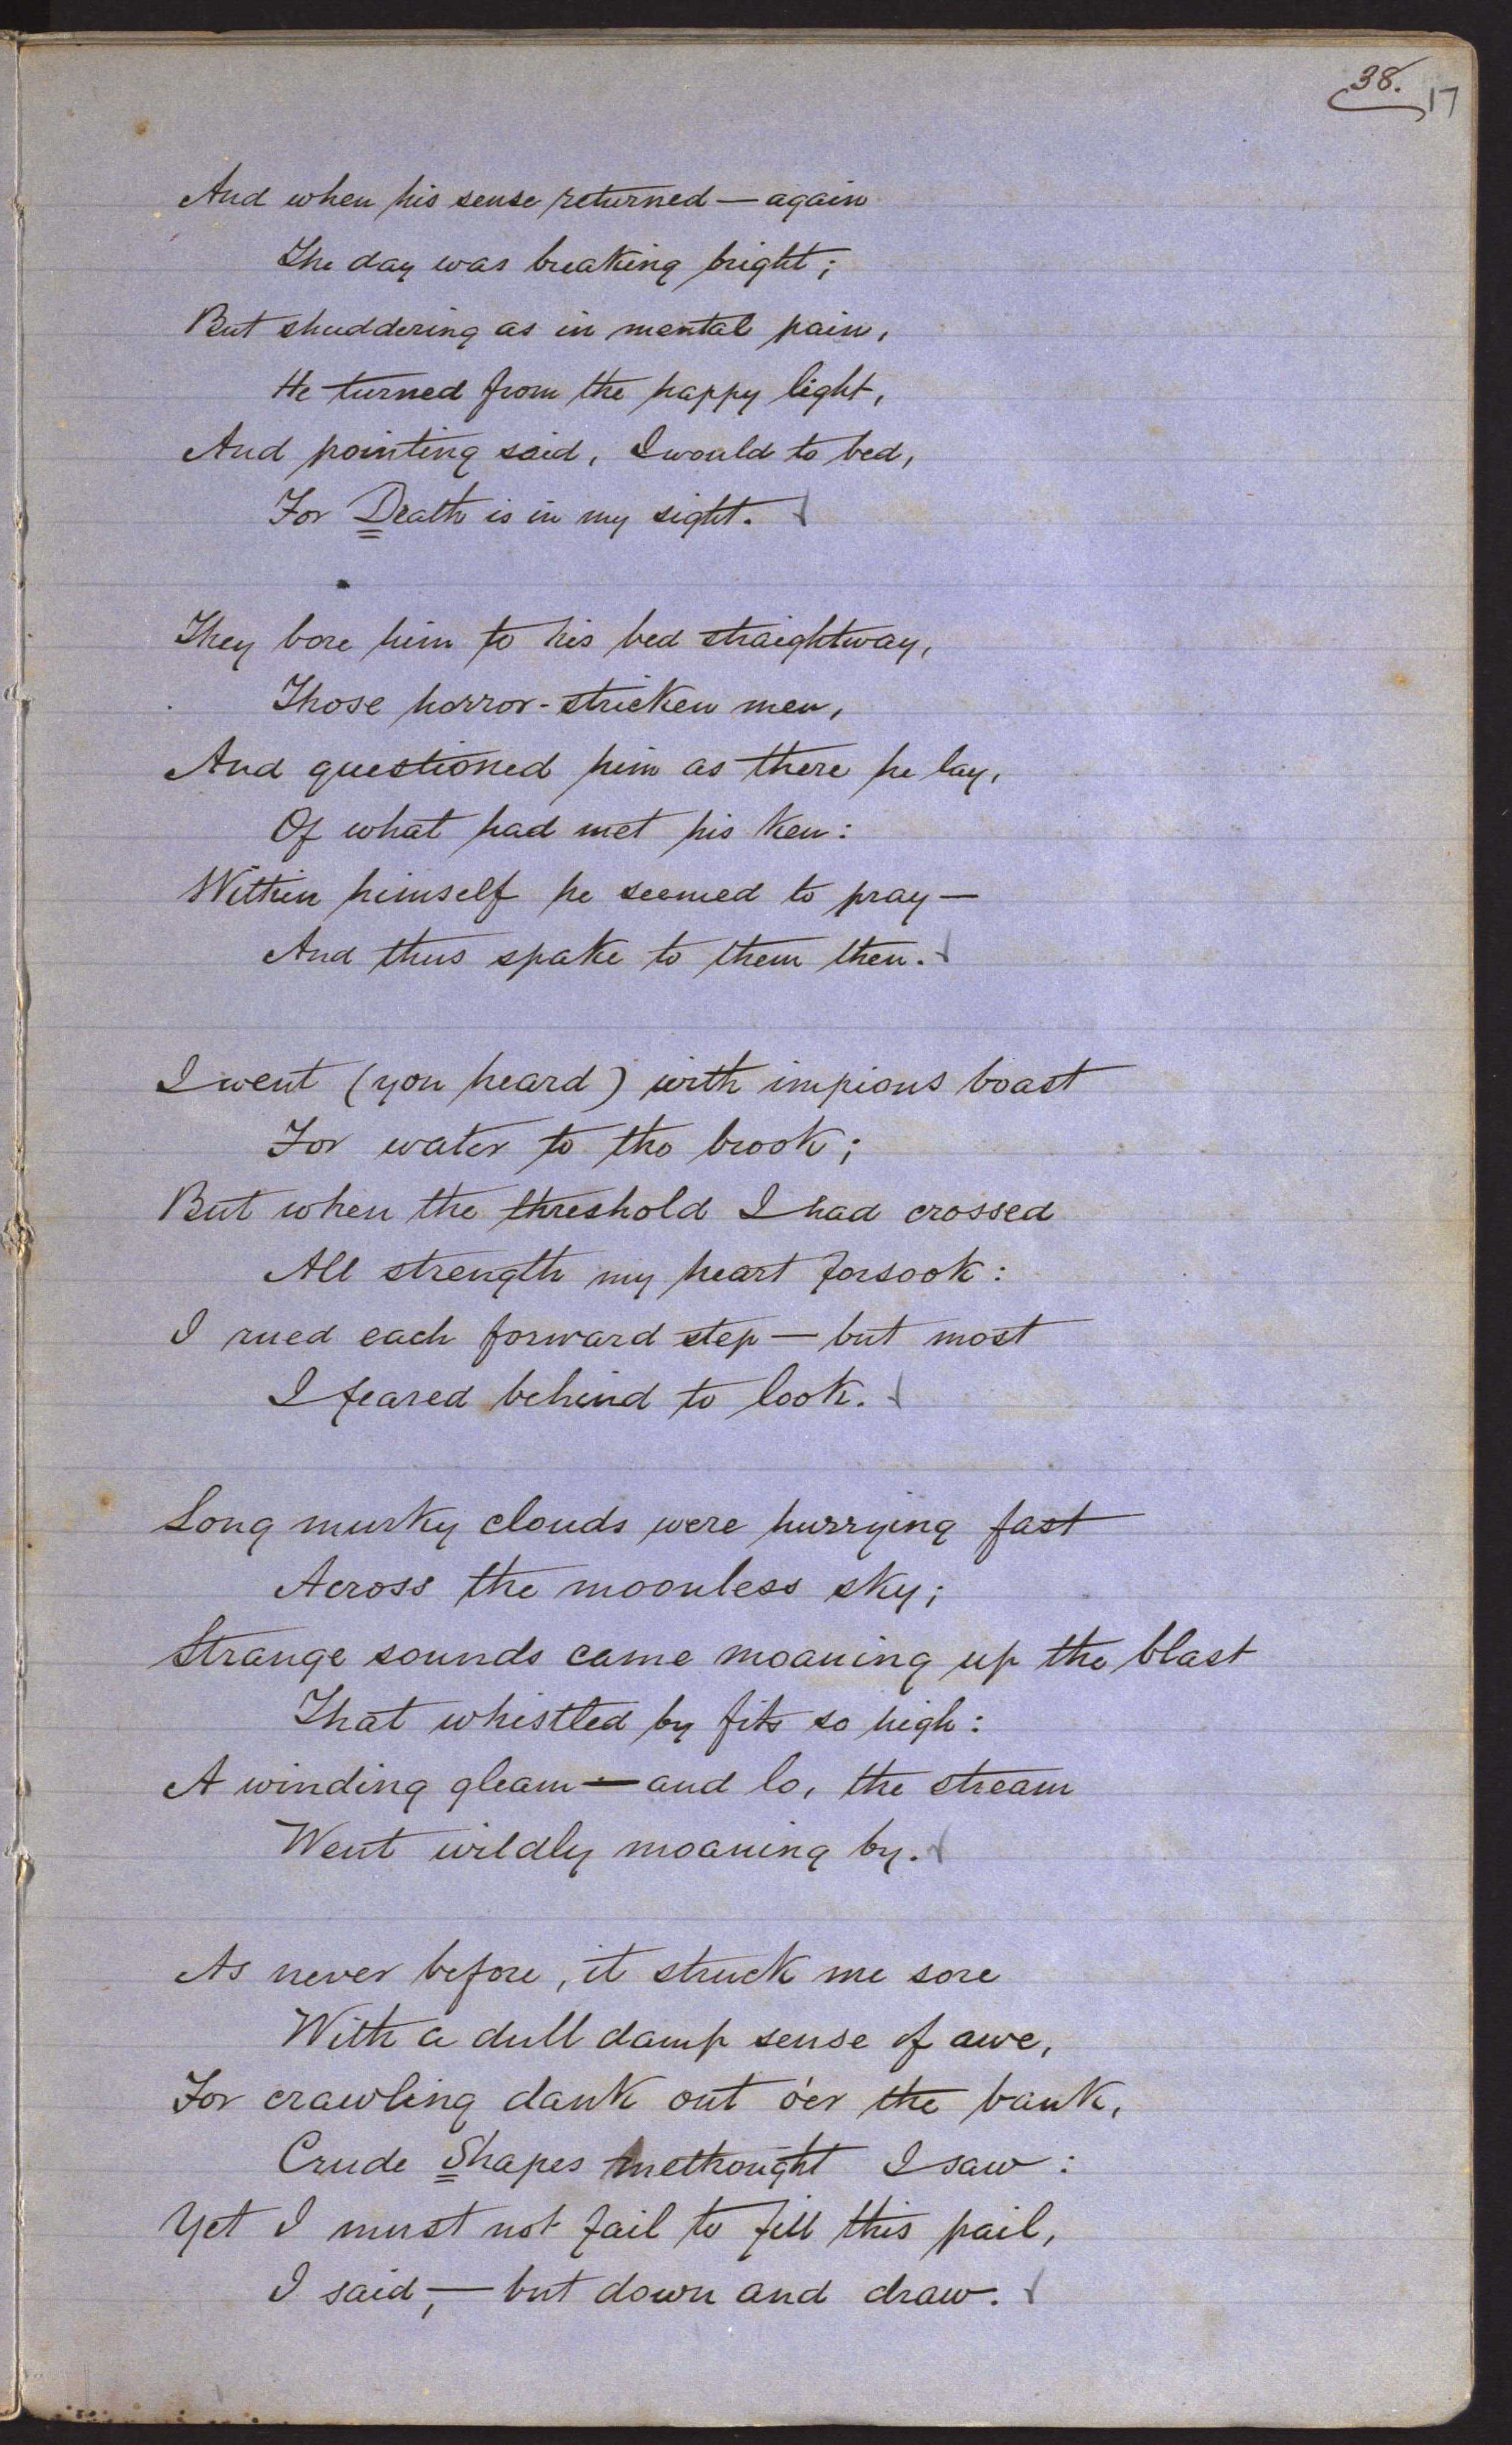 38.
17
And when his sense returned — again
The day was breaking bright;
But shuddering as in mental pain,
He turned from the happy light,
And pointing said, I would to bed,
For Death is in my sight.
They bore him to his bed straightway,
Those horror-stricken men,
And questioned him as there he lay,
Of what had met his ken:
Within himself he seemed to pray —
And thus spake to them then.
I went (you heard) with impious boast
For water to the brook;
But when the threshold I had crossed
All strength my heart forsook:
I rued each forward step — but most
I feared behind to look.
Long murky clouds were hurrying fast
Across the moonless sky;
Strange sounds came moaning up the blast
That whistled by fits so high:
A winding gleam — and lo, the stream
Went wildly moaning by.
As never before, it struck me sore
With a dull damp sense of awe,
For crawling dank out o'er the bank,
Crude Shapes methought I saw:
Yet I must not fail to fill this pail,
I said, — but down and draw.